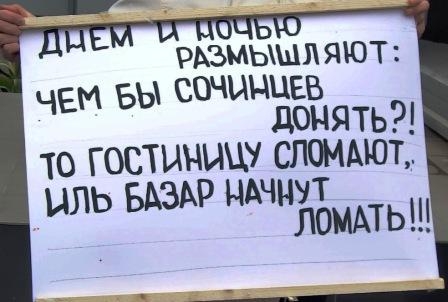 ДНЕМ И НОЧЬЮ
РАЗМЫШЛЯЮТ:
ЧЕМ БЫ СОЧИНЦЕВ
ДОНЯТЬ?!
ТО ГОСТИНИЦУ СЛОМАЮТ,
ИЛЬ БАЗАР НАЧНУТ
ЛОМАТЬ!!!